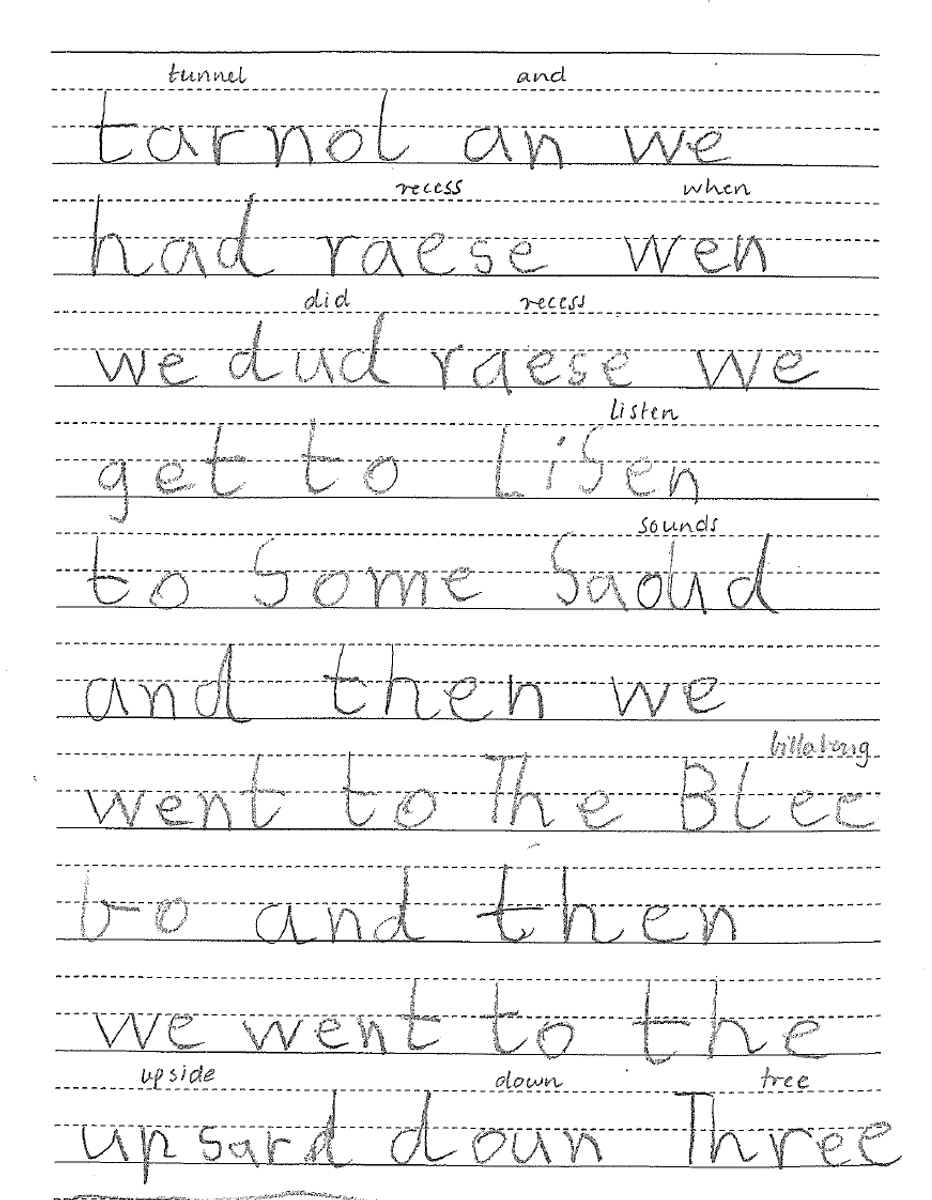 tunnel and
tarnol an we
recess when
had raese wen
did recess
we dud raese we
listen
get to Lisen
sounds
to Some Saoud
and then we
billabong
went to The Blee
bo and then
we went to the
upside down tree
upsard doun Three